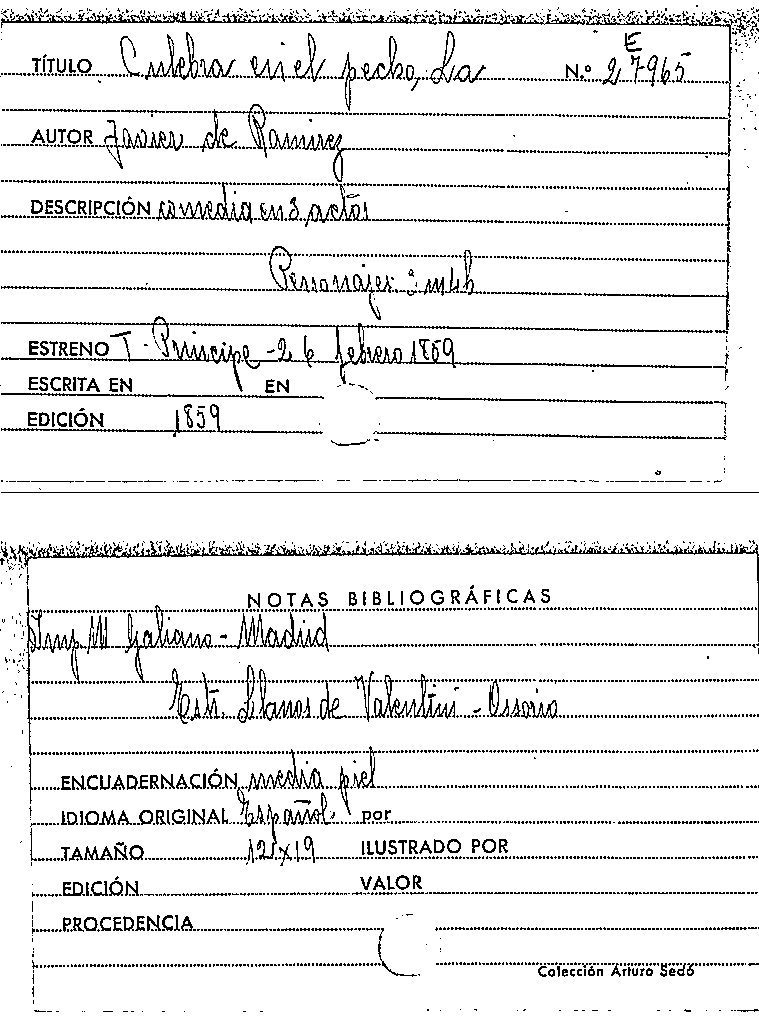 E
TÍTULO Culebra en el pecho, La N.º 27965
AUTOR Javier de Ramirez
DESCRIPCIÓN comedia en 3 actos
Personajes
ESTRENO T. Principe - 26 febrero 1859
ESCRITA EN EN
EDICIÓN 1859
NOTAS BIBLIOGRÁFICAS
Imp M Galiano - Madrid
Estr. Llanos de Valentini - Ossorio
ENCUADERNACIÓN media piel
IDIOMA ORIGINAL Español. por
TAMAÑO 12x19 ILUSTRADO POR
EDICIÓN VALOR
PROCEDENCIA
Colección Arturo Sedó